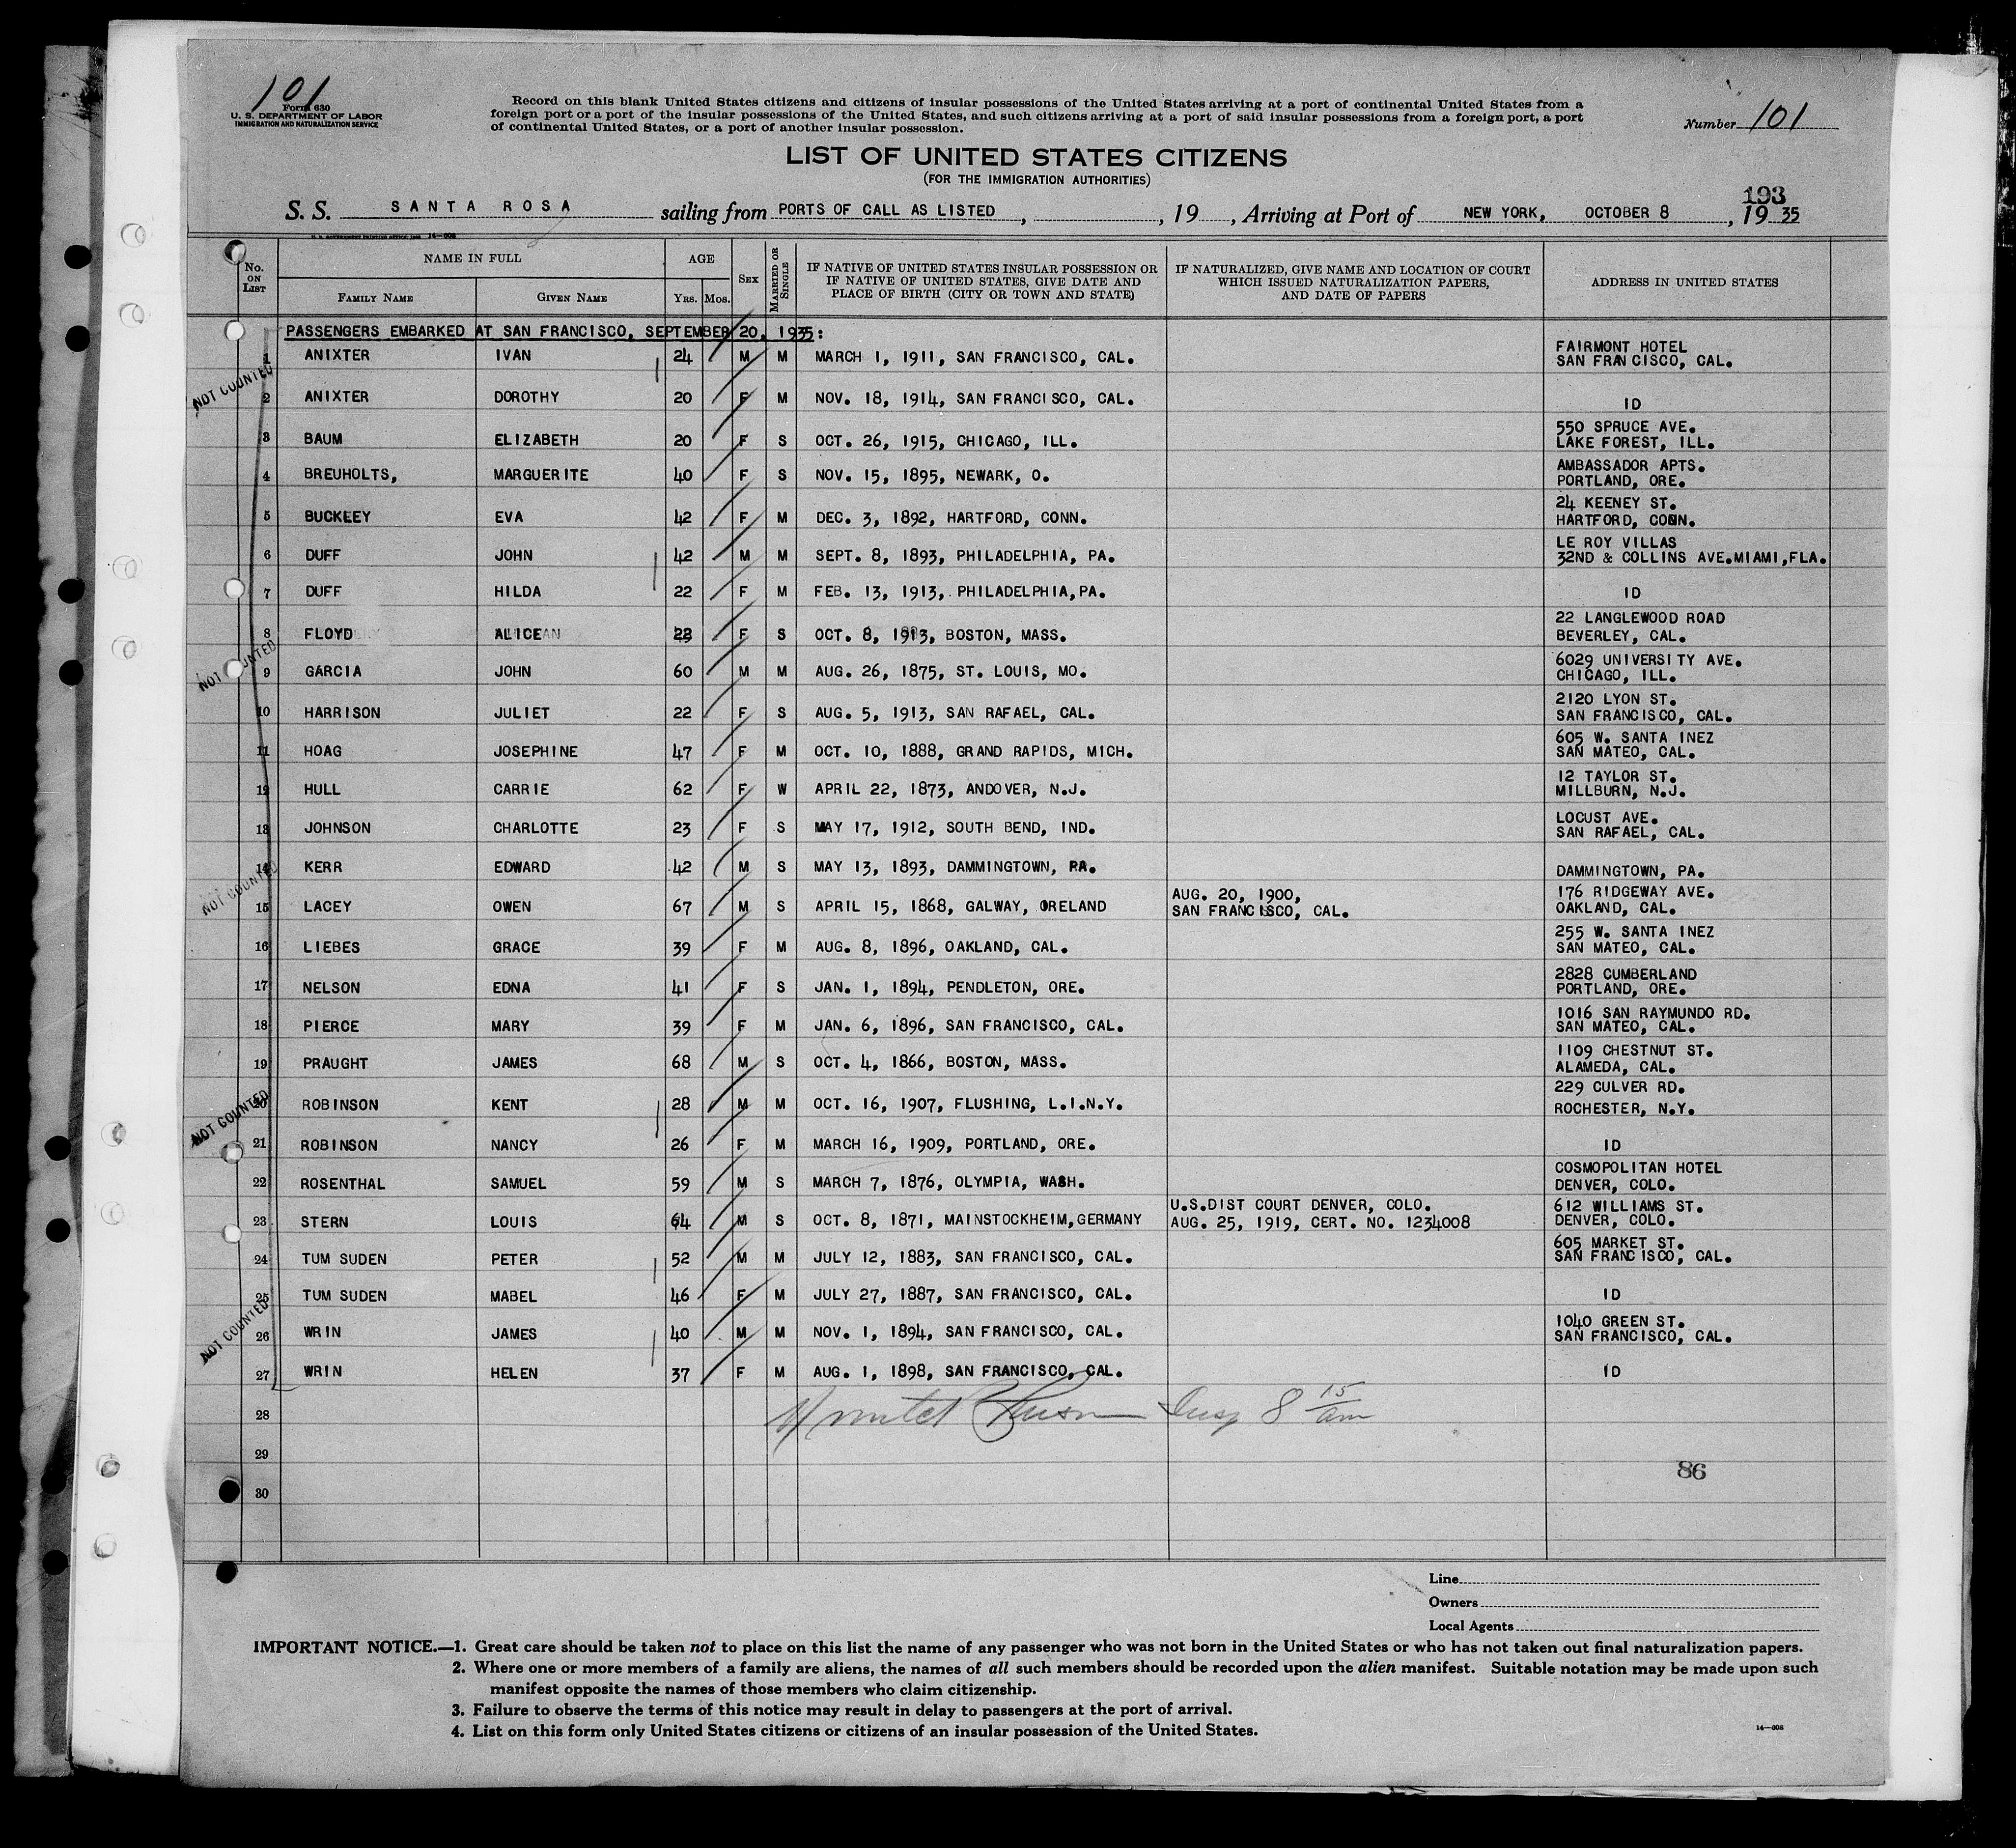 101
Form 630
U. S. DEPARTMENT OF LABOR
IMMIGRATION AND NATURALIZATION SERVICE
Record on this blank United States citizens and citizens of insular possessions of the United States arriving at a port of continental United States from a
foreign port or a port of the insular possessions of the United States, and such citizens arriving at a port of said insular possessions from a foreign port, a port
of continental United States, or a port of another insular possession.
Number 101
LIST OF UNITED STATES CITIZENS
(FOR THE IMMIGRATION AUTHORITIES)
193
S. S. SANTA ROSA sailing from PORTS OF CALL AS LISTED, , 19 , Arriving at Port of NEW YORK, OCTOBER 8, 19 35
No. ON LIST NAME IN FULL FAMILY NAME GIVEN NAME AGE YRS. MOS. SEX MARRIED OR SINGLE IF NATIVE OF UNITED STATES INSULAR POSSESSION OR IF NATIVE OF UNITED STATES, GIVE DATE AND PLACE OF BIRTH (CITY OR TOWN AND STATE) IF NATURALIZED, GIVE NAME AND LOCATION OF COURT WHICH ISSUED NATURALIZATION PAPERS, AND DATE OF PAPERS ADDRESS IN UNITED STATES
PASSENGERS EMBARKED AT SAN FRANCISCO, SEPTEMBER 20, 1935:
1 ANIXTER IVAN 24 M M MARCH 1, 1911, SAN FRANCISCO, CAL. FAIRMONT HOTEL SAN FRANCISCO, CAL.
NOT COUNTED
2 ANIXTER DOROTHY 20 F M NOV. 18, 1914, SAN FRANCISCO, CAL. ID
3 BAUM ELIZABETH 20 F S OCT. 26, 1915, CHICAGO, ILL. 550 SPRUCE AVE. LAKE FOREST, ILL.
4 BREUHOLTS, MARGUERITE 40 F S NOV. 15, 1895, NEWARK, O. AMBASSADOR APTS. PORTLAND, ORE.
5 BUCKLEY EVA 42 F M DEC. 3, 1892, HARTFORD, CONN. 24 KEENEY ST. HARTFORD, CONN.
6 DUFF JOHN 42 M M SEPT. 8, 1893, PHILADELPHIA, PA. LE ROY VILLAS 32ND & COLLINS AVE.MIAMI,FLA.
7 DUFF HILDA 22 F M FEB. 13, 1913, PHILADELPHIA,PA. ID
8 FLOYD ALICE F S OCT. 8, 1913, BOSTON, MASS. 22 LANGLEWOOD ROAD BEVERLEY, CAL.
NOT COUNTED
9 GARCIA JOHN 60 M M AUG. 26, 1875, ST. LOUIS, MO. 6029 UNIVERSITY AVE. CHICAGO, ILL.
10 HARRISON JULIET 22 F S AUG. 5, 1913, SAN RAFAEL, CAL. 2120 LYON ST. SAN FRANCISCO, CAL.
11 HOAG JOSEPHINE 47 F M OCT. 10, 1888, GRAND RAPIDS, MICH. 605 W. SANTA INEZ SAN MATEO, CAL.
12 HULL CARRIE 62 F W APRIL 22, 1873, ANDOVER, N.J. 12 TAYLOR ST. MILLBURN, N.J.
13 JOHNSON CHARLOTTE 23 F S MAY 17, 1912, SOUTH BEND, IND. LOCUST AVE. SAN RAFAEL, CAL.
14 KERR EDWARD 42 M S MAY 13, 1893, DAMMINGTOWN, PA. DAMMINGTOWN, PA.
NOT COUNTED
15 LACEY OWEN 67 M S APRIL 15, 1868, GALWAY, IRELAND AUG. 20, 1900, SAN FRANCISCO, CAL. 176 RIDGEWAY AVE. OAKLAND, CAL.
16 LIEBES GRACE 39 F M AUG. 8, 1896, OAKLAND, CAL. 255 W. SANTA INEZ SAN MATEO, CAL.
17 NELSON EDNA 41 F S JAN. 1, 1894, PENDLETON, ORE. 2828 CUMBERLAND PORTLAND, ORE.
18 PIERCE MARY 39 F M JAN. 6, 1896, SAN FRANCISCO, CAL. 1016 SAN RAYMUNDO RD. SAN MATEO, CAL.
19 PRAUGHT JAMES 68 M S OCT. 4, 1866, BOSTON, MASS. 1109 CHESTNUT ST. ALAMEDA, CAL.
20 ROBINSON KENT 28 M M OCT. 16, 1907, FLUSHING, L.I.N.Y. 229 CULVER RD. ROCHESTER, N.Y.
NOT COUNTED
21 ROBINSON NANCY 26 F M MARCH 16, 1909, PORTLAND, ORE. ID
22 ROSENTHAL SAMUEL 59 M S MARCH 7, 1876, OLYMPIA, WASH. COSMOPOLITAN HOTEL DENVER, COLO.
23 STERN LOUIS 64 M S OCT. 8, 1871, MAINSTOCKHEIM,GERMANY U.S.DIST COURT DENVER, COLO. AUG. 25, 1919, CERT. NO. 1234008 612 WILLIAMS ST. DENVER, COLO.
24 TUM SUDEN PETER 52 M M JULY 12, 1883, SAN FRANCISCO, CAL. 605 MARKET ST. SAN FRANCISCO, CAL.
25 TUM SUDEN MABEL 46 F M JULY 27, 1887, SAN FRANCISCO, CAL. ID
NOT COUNTED
26 WRIN JAMES 40 M M NOV. 1, 1894, SAN FRANCISCO, CAL. 1040 GREEN ST. SAN FRANCISCO, CAL.
27 WRIN HELEN 37 F M AUG. 1, 1898, SAN FRANCISCO, CAL. ID
28 Insp 8 15 am
29
86
30
Line
Owners
Local Agents
IMPORTANT NOTICE.—1. Great care should be taken not to place on this list the name of any passenger who was not born in the United States or who has not taken out final naturalization papers.
2. Where one or more members of a family are aliens, the names of all such members should be recorded upon the alien manifest. Suitable notation may be made upon such
manifest opposite the names of those members who claim citizenship.
3. Failure to observe the terms of this notice may result in delay to passengers at the port of arrival.
4. List on this form only United States citizens or citizens of an insular possession of the United States.
14—608